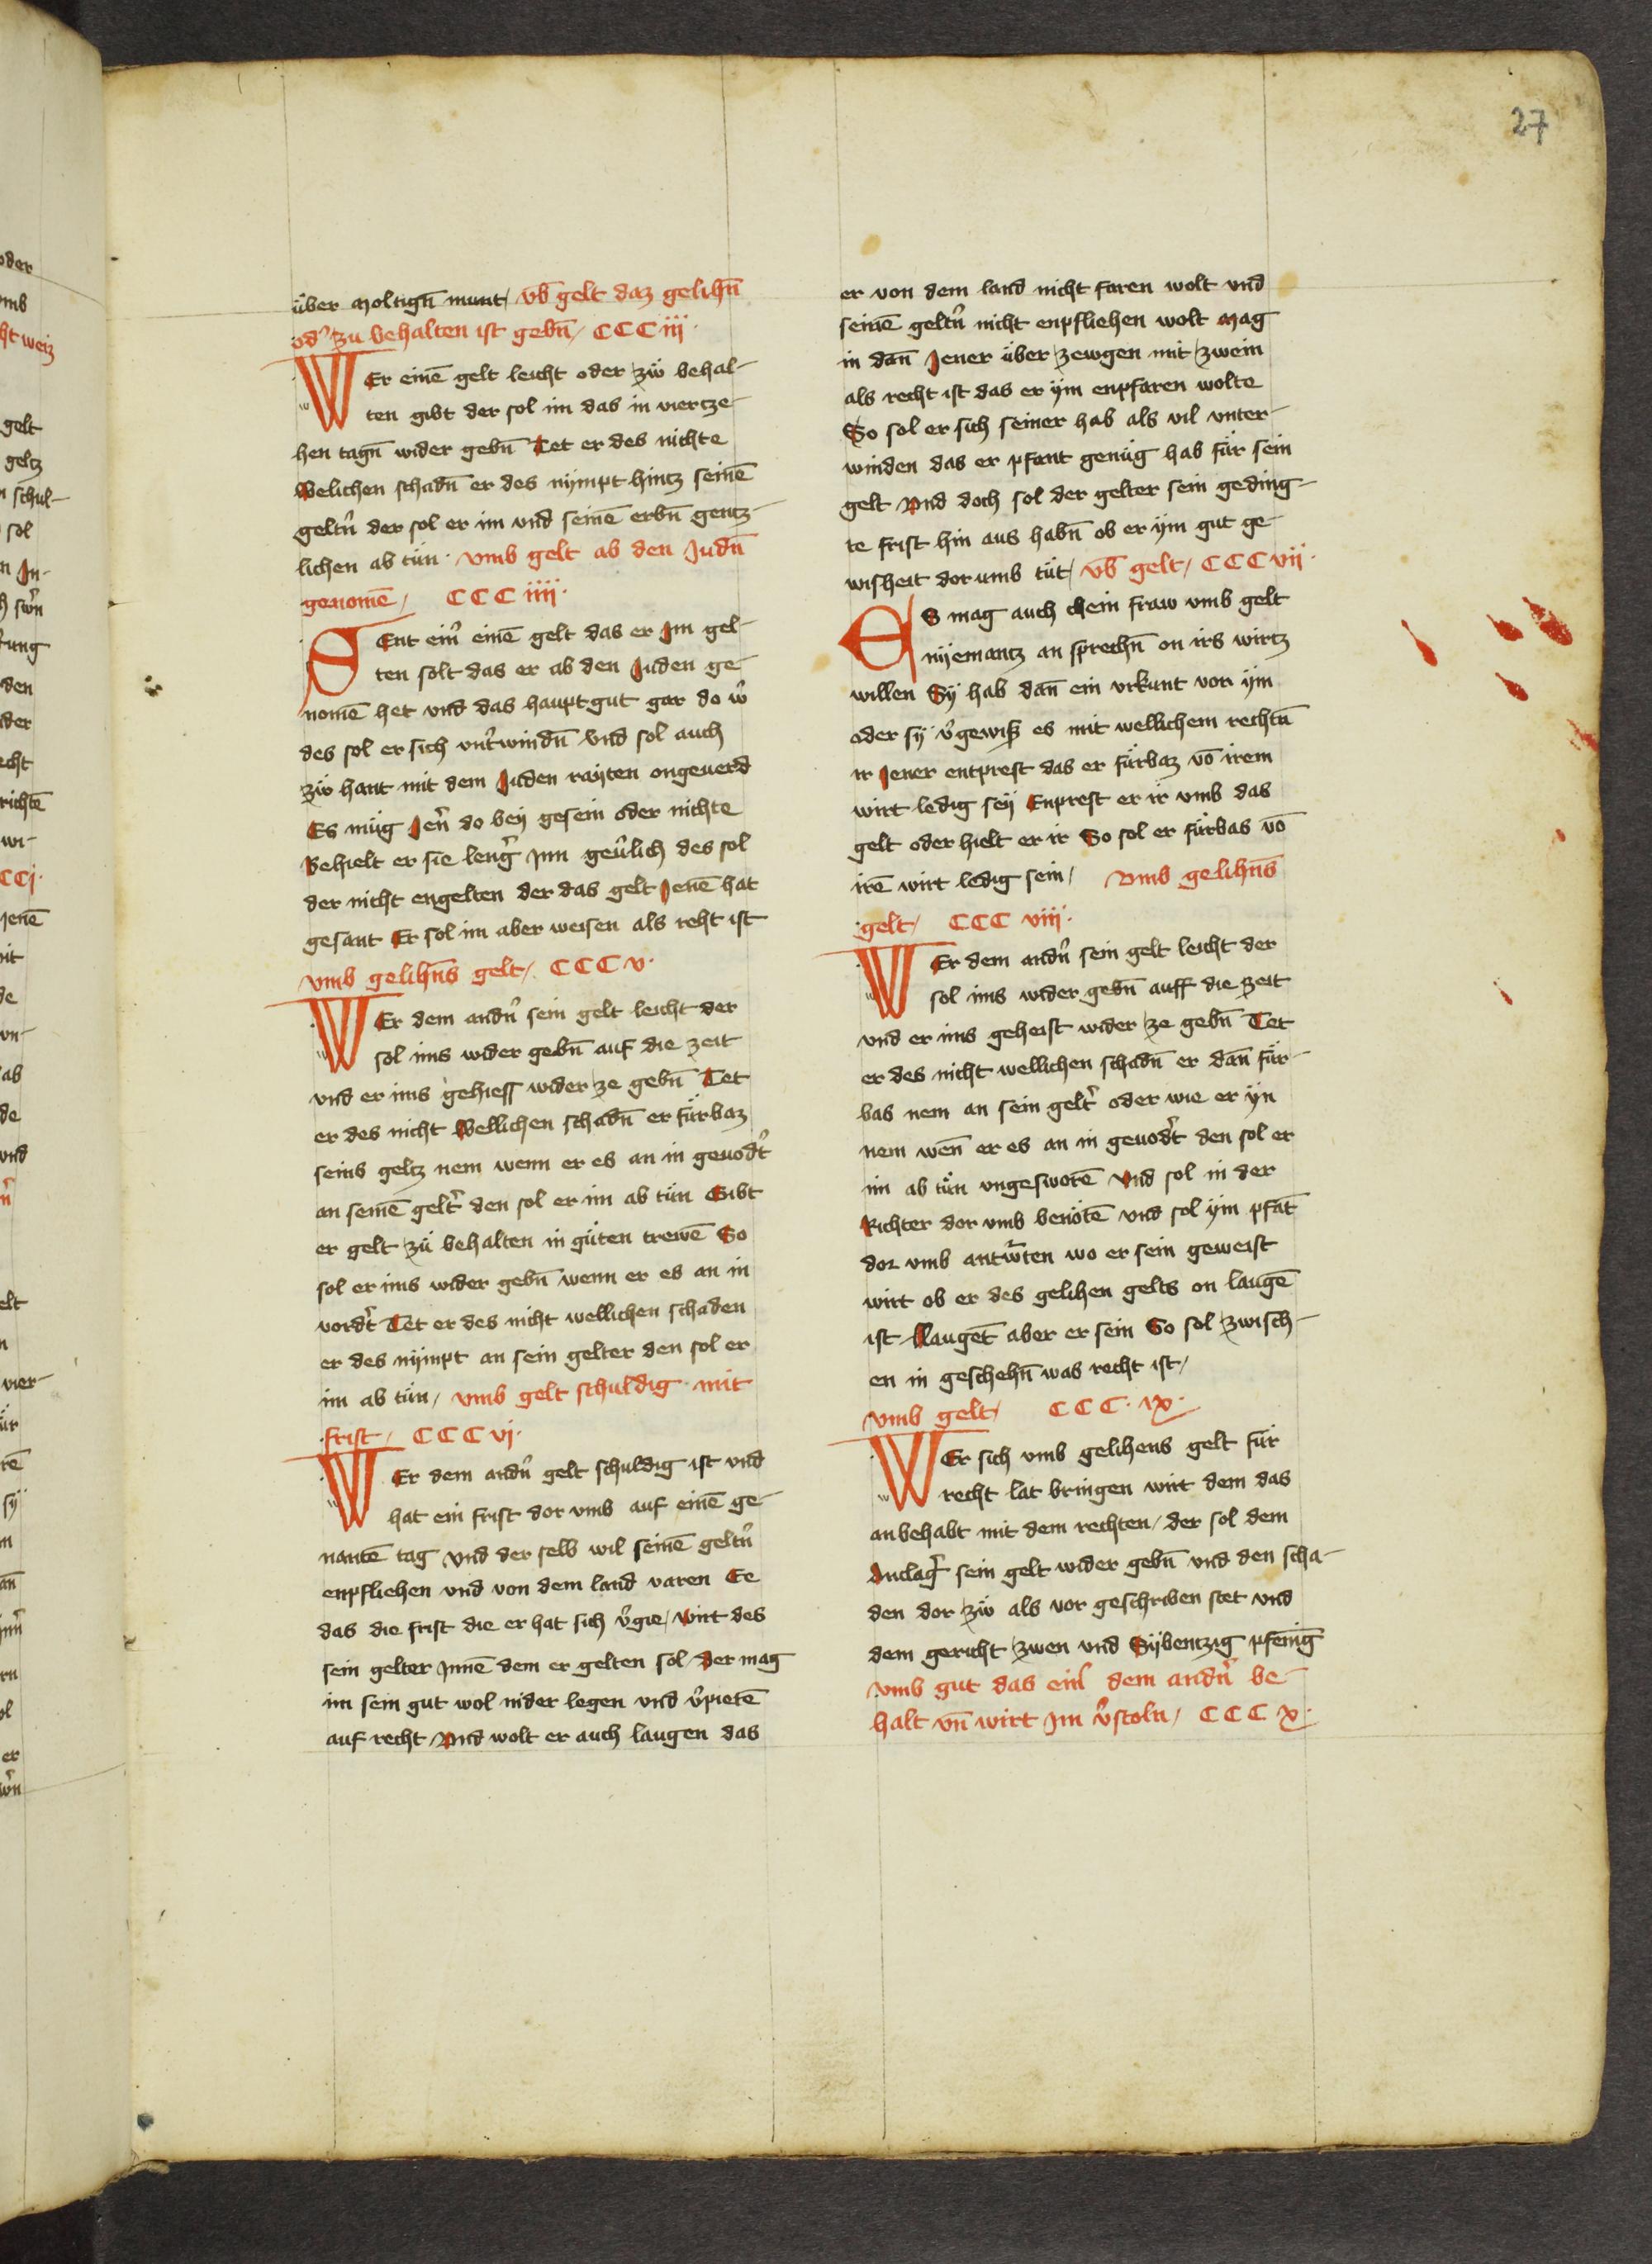 27
über moltigñ munt / vb̄ gelt daz gelihñ
od̾ zu behalten ist gebñ / CCC iij ·
WEr einē gelt leicht oder zw̎ behal-
ten gibt der sol im das in viertze-
hen tagñ wider gebñ Tet er des nichte
Welichen schadñ er des nÿmpt hintz seinē
geltn̾ der sol er im vnd seinē erbñ gentz-
lichen ab tün · vmb gelt ab den Judñ
genomē / CCC iiii ·
SEnt ein̾ einē gelt das er Jm gel-
ten solt das er ab den Juden ge-
nomē het vnd das haupt gut gar do w̾
des sol er sich vnt̾windñ vnd sol auch
zw̎ hant mit dem Juden raÿten ongeuerd
Es müg Jen̾ do beÿ gesein oder nichte
Behielt er sie leng̾ Jnn geu̾lich des sol
der nicht engelten der das gelt Jenē hat
gesant Er sol im aber weisen als reht ist
vmb gelihñs gelt / CCC v ·
WEr dem andn̾ sein gelt leicht der
sol ims wider gebñ auf die zeit
vnd er ims gehiess wider ze gebñ Tet
er des nicht Wellichen schadñ er fürbaz
seins geltz nem wenn er es an in geuodt̾
an seinē gelt̾ den sol er im ab tün Gibt
er gelt zü behalten in güten trewē So
sol er ims wider gebñ wenn er es an in
vordt̾ Tet er des nicht wellichen schaden
er des nÿmpt an sein gelter den sol er
im ab tün / vmb gelt schuldig mit
frist / CCC vj ·
WEr dem andn̾ gelt schuldig ist vnd
hat ein frist dor vmb auf einē ge-
nantē tag vnd der selb wil seinē geltn̾
enpfliehen vnd von dem land varen Ee
das die frist die er hat sich v̾gie / wirt des
sein gelter Jnnē dem er gelten sol / der mag
im sein gut wol nider legen vnd v̾pietē
auf recht / Vnd wolt er auch laugen das
er von dem land nicht faren wolt vnd
seinē geltn̾ nicht enpfliehen wolt mag
in dañ Jener über zewgen mit zwein
als recht ist das er ÿm enpfaren wolte
So sol er sich seiner hab als vil vnter-
winden das er pfant genüg hab für sein
gelt Vnd doch sol der gelter sein geding-
te frist hin aus habñ ob er ÿm gut ge-
wisheit dor umb tüt / vb̄ gelt / CCC vii ·
ES mag auch chein fraw vmb gelt
nÿemantz an sprechñ on irs wirtz
willen Sÿ hab dañ ein vrkunt vor ÿm
oder sÿ v̾gewiß es mit wellichem rechtñ
ir Jener entprest das er fürbaz vō irem
wirt ledig seÿ Enprest er ir vmb das
gelt oder hielt er ir So sol er fürbas vō
irē wirt ledig sein / vmb gelihñs
gelt / CCC viii ·
WEr dem andn̾ sein gelt leicht der
sol ims wider gebñ auff die zeit
vnd er ims geheist wider ze gebñ Tet
er des nicht wellichen schadñ er dañ für-
bas nem an sein gelt̾ oder wie er ÿn
nem weñ er es an in geuodt̾ den sol er
im ab tün vngesworē vnd sol in der
Richter dor vmb benötē vnd sol ÿm pfāt
dor vmb antw̾ten wo er sein geweist
wirt ob er des gelihen gelts on laugē
ist Laugēt aber er sein So sol zwisch-
en in geschehñ was recht ist /
vmb gelt / CCC · ix ·
WEr sich vmb gelihens gelt für
recht lat bringen wirt dem das
anbehabt mit dem rechten / der sol dem
Anclag̾ sein gelt wider gebñ vnd den scha-
den dor zw̎ als vor geschriben stet vnd
dem gericht zwen vnd Sÿbentzig pfenig̃
vmb gut das ein̾ dem andn̾ be-
halt vñ wirt Jm v̾stoln / CCC x ·